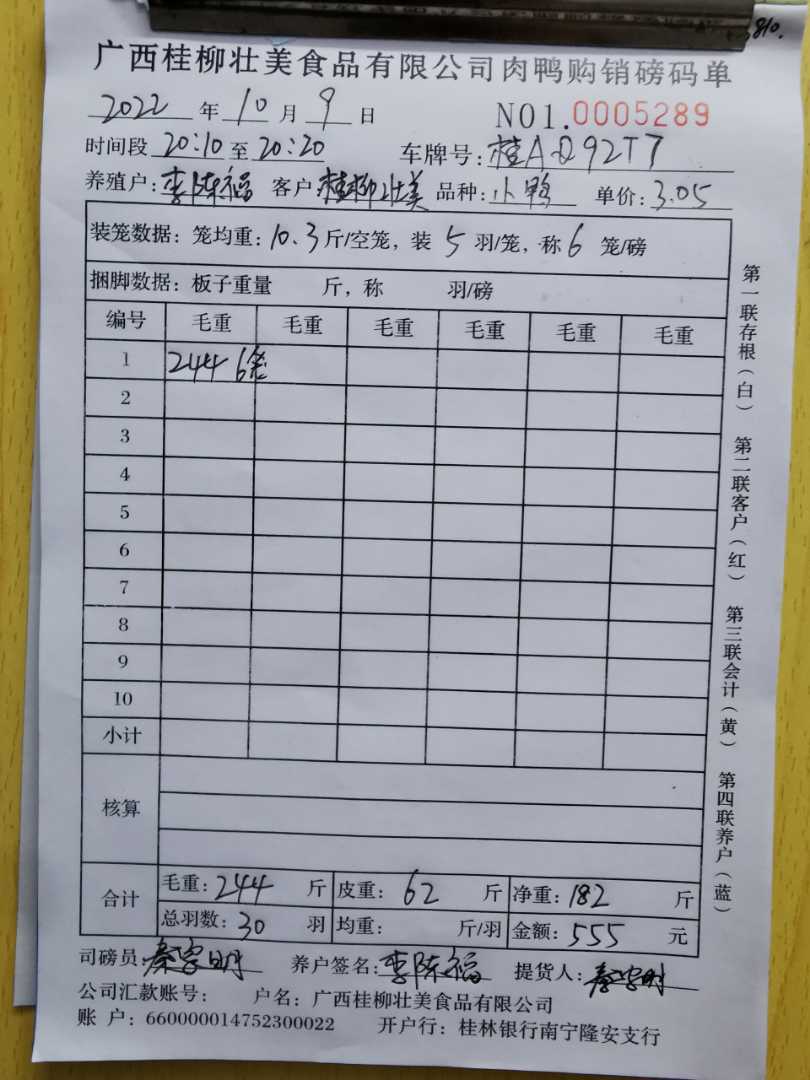 810.
广西桂柳壮美食品有限公司肉鸭购销磅码单
2022 年 10 月 9 日 NO1.0005289
时间段 20:10 至 20:20 车牌号: 桂A·Q92T7
养殖户: 李陈福 客户: 桂柳壮美 品种: 小鸭 单价: 3.05
装笼数据: 笼均重: 10.3 斤/空笼, 装 5 羽/笼, 称 6 笼/磅
捆脚数据: 板子重量 斤, 称 羽/磅
编号 毛重 毛重 毛重 毛重 毛重 毛重
1 244 6笼
2
3
4
5
6
7
8
9
10
小计
核算
合计 毛重: 244 斤 皮重: 62 斤 净重: 182 斤
总羽数: 30 羽 均重: 斤/羽 金额: 555 元
司磅员: 养户签名: 李陈福 提货人:
公司汇款账号: 户名: 广西桂柳壮美食品有限公司
账 户: 660000014752300022 开户行: 桂林银行南宁隆安支行
第一联存根(白) 第二联客户(红) 第三联会计(黄) 第四联养户(蓝)